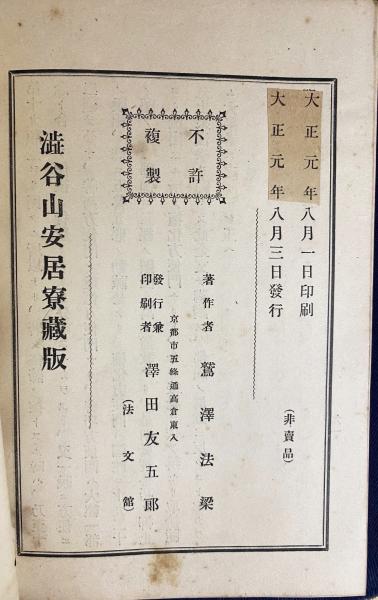 大正元年八月一日印刷
大正元年八月三日發行
(非賣品)
不許
複製
著作者 鷲澤法梁
京都市五條通高倉東入
發行兼
印刷者 澤田友五郎
(法文館)
澁谷山安居寮藏版